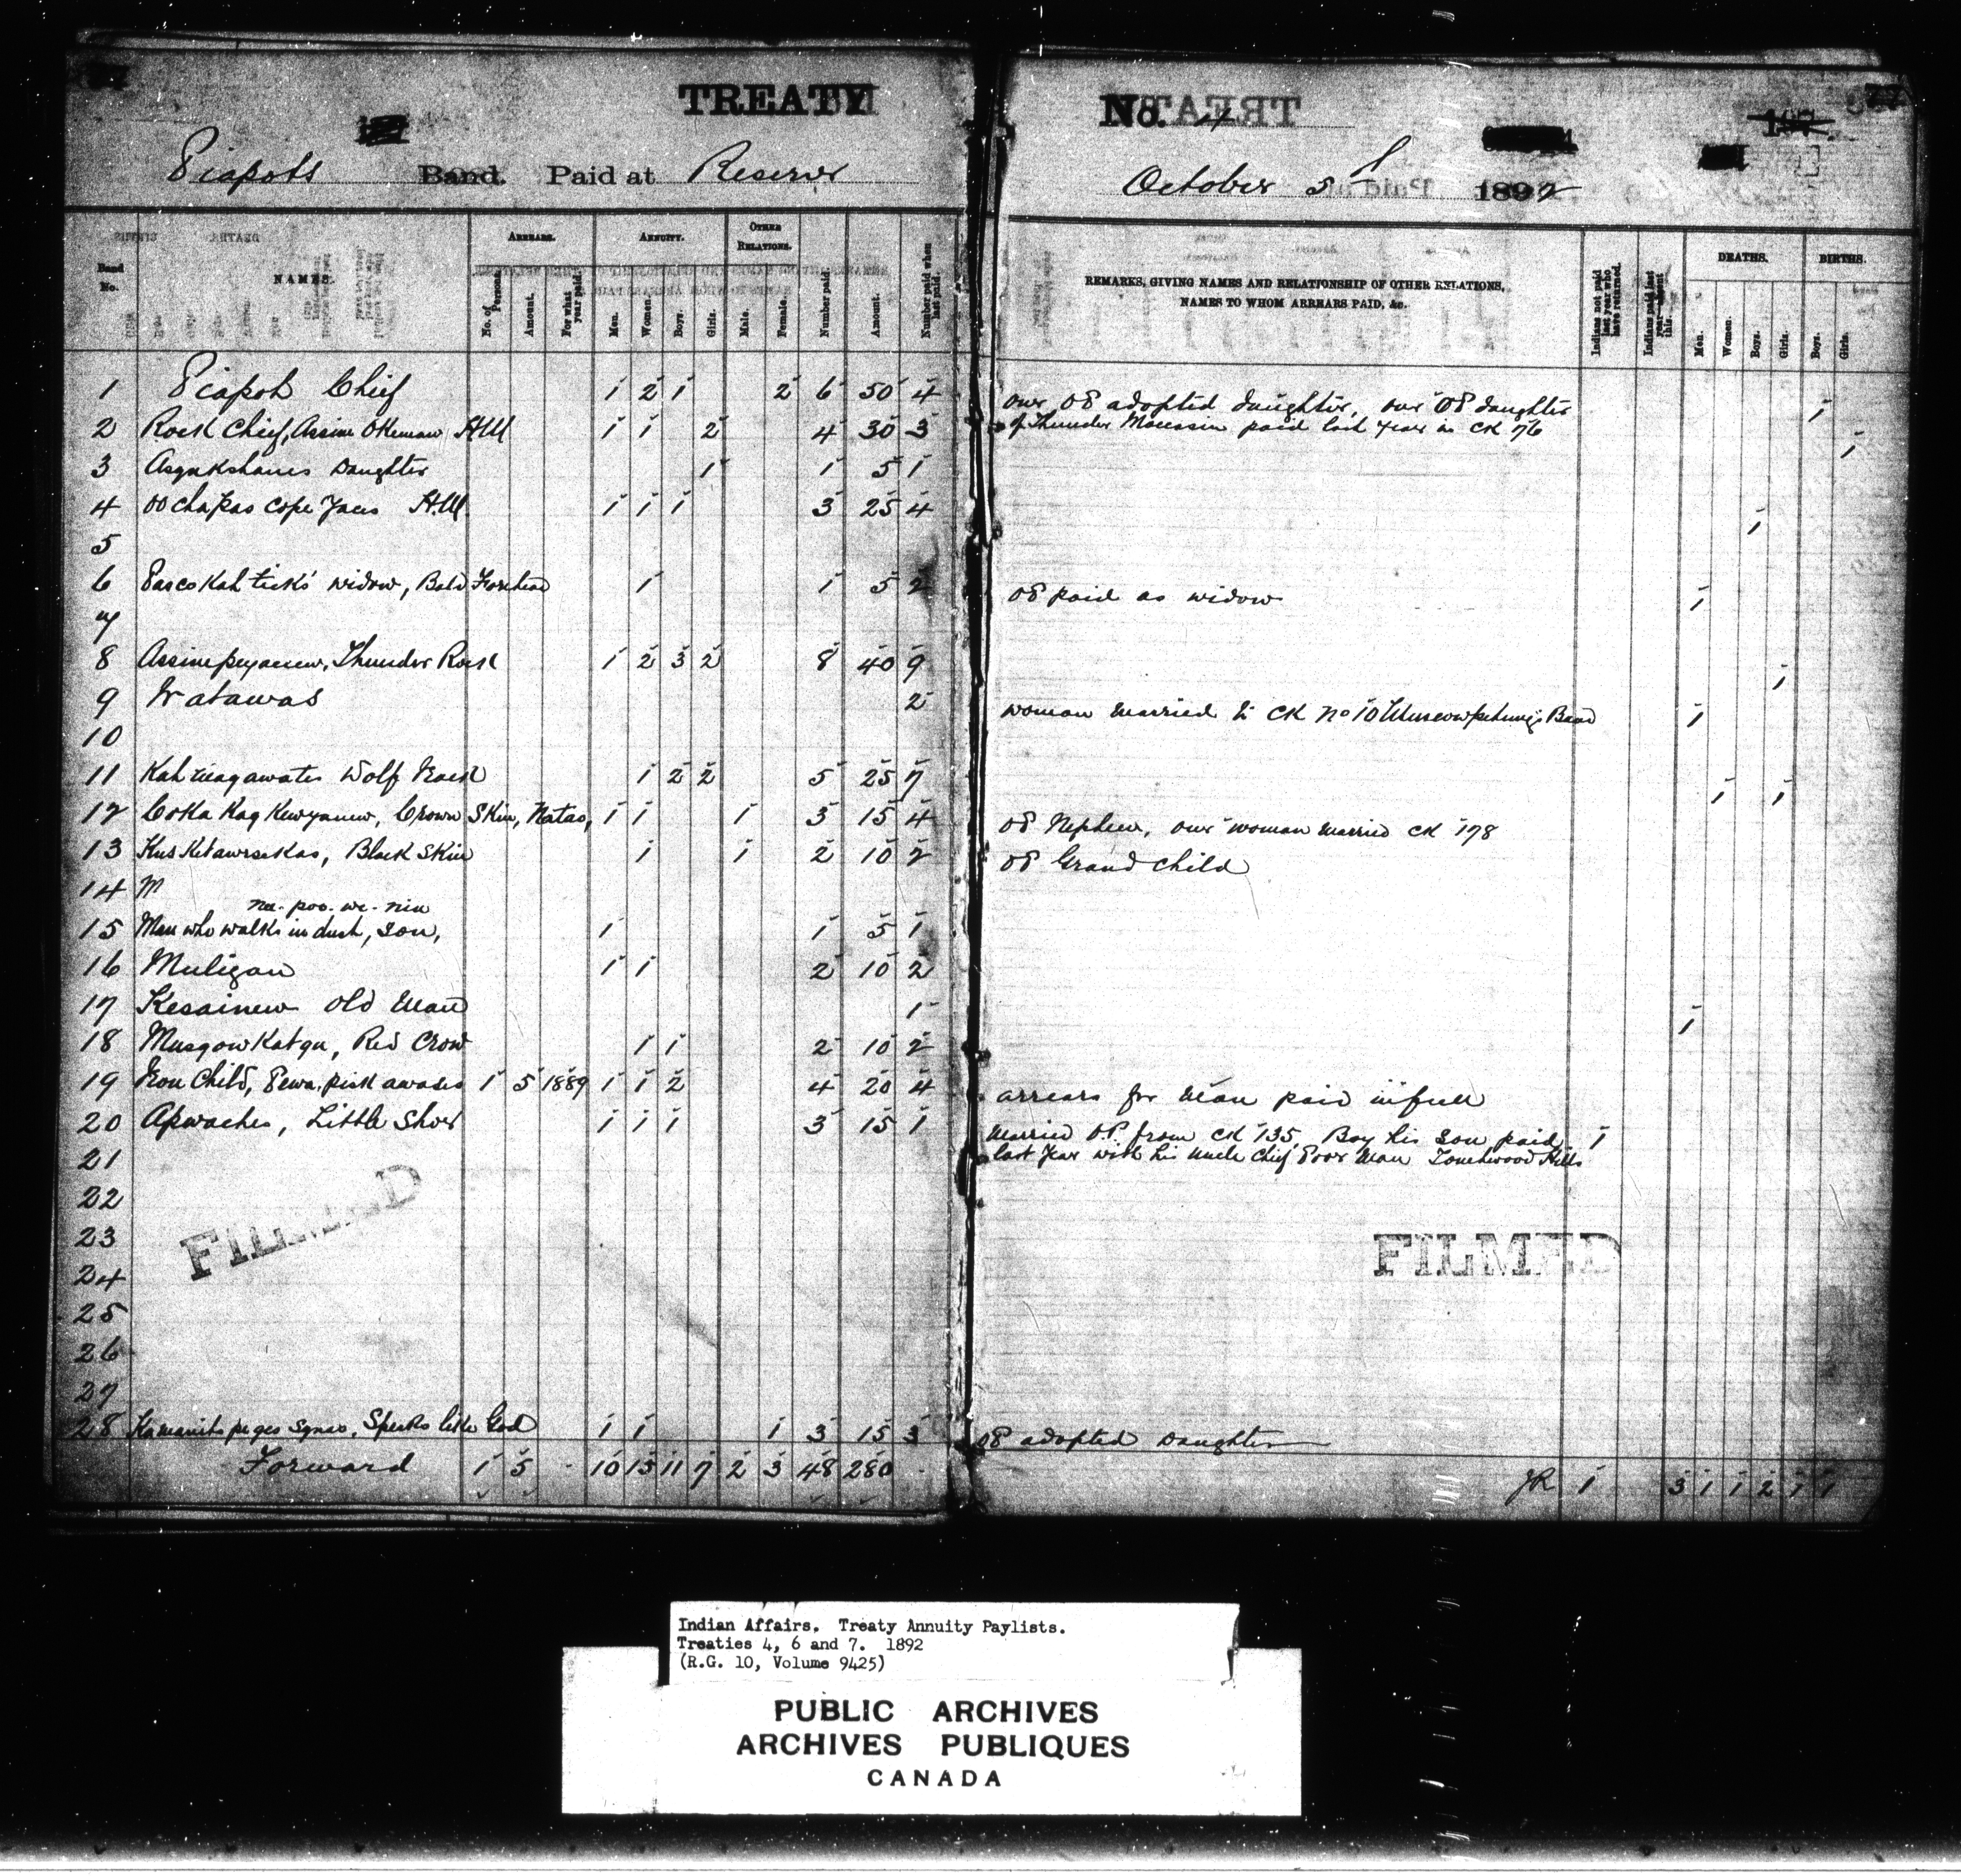 TREATY No. 4
Piapots Band. Paid at Reserve October 5th 1892
Band No. NAMES. ARREARS. No. of Persons. Amount. For what year paid. ANNUITY. Men. Women. Boys. Girls. OTHER RELATIONS. Male. Female. Number paid. Amount. Number paid when last paid. REMARKS, GIVING NAMES AND RELATIONSHIP OF OTHER RELATIONS, NAMES TO WHOM ARREARS PAID, &c. Indians not paid last year who have returned. Indians paid last year—absent this. DEATHS. Men. Women. Boys. Girls. BIRTHS. Boys. Girls.
1 Piapot Chief 1 2 1 2 6 50 4 one OP adopted daughter, one OP daughter 1
2 Rock Chief, Assine Okemow HM 1 1 2 4 30 3 of Thunder Moccasin paid last year in CK 76 1
3 Daughter 1 1 5 1
4 HM 1 1 1 3 25 4 1
5
6 widow, Bald Forehead 1 1 5 2 OP paid as widow 1
7
8 Thunder Rock 1 2 3 2 8 40 9 1
9 Watawas 2 woman married to CK No 10 Band 1
10
11 Wolf 1 2 2 5 25 7 1 1
12 Crown Skin, Natas, 1 1 1 3 15 4 OP Nephew, one woman married CK 178
13 Black Skin 1 1 2 10 2 OP Grand child
14
nee-poo-we-nin
15 Man who walks in dusk, son, 1 1 5 1
16 Muligan 1 1 2 10 2
17 Kesainew Old Man 1 1
18 Red Crow 1 1 2 10 2
19 Iron Child, 1 5 1889 1 1 2 4 20 4 arrears for Man paid in full
20 Apwaches, Little Shoe 1 1 1 3 15 1 Married O.P. from CK 135, Boy his son paid 1
21 last year with his uncle Chief Poor Man Touchwood Hills
22
23
24
25
26
27
28 Speaks like God 1 1 1 3 15 3 OP adopted Daughter
Forward 1 5 10 15 11 7 2 3 48 280 JR 1 3 1 1 2 1 1
FILMED
FILMED
Indian Affairs. Treaty Annuity Paylists.
Treaties 4, 6 and 7. 1892
(R.G. 10, Volume 9425)
PUBLIC ARCHIVES
ARCHIVES PUBLIQUES
CANADA